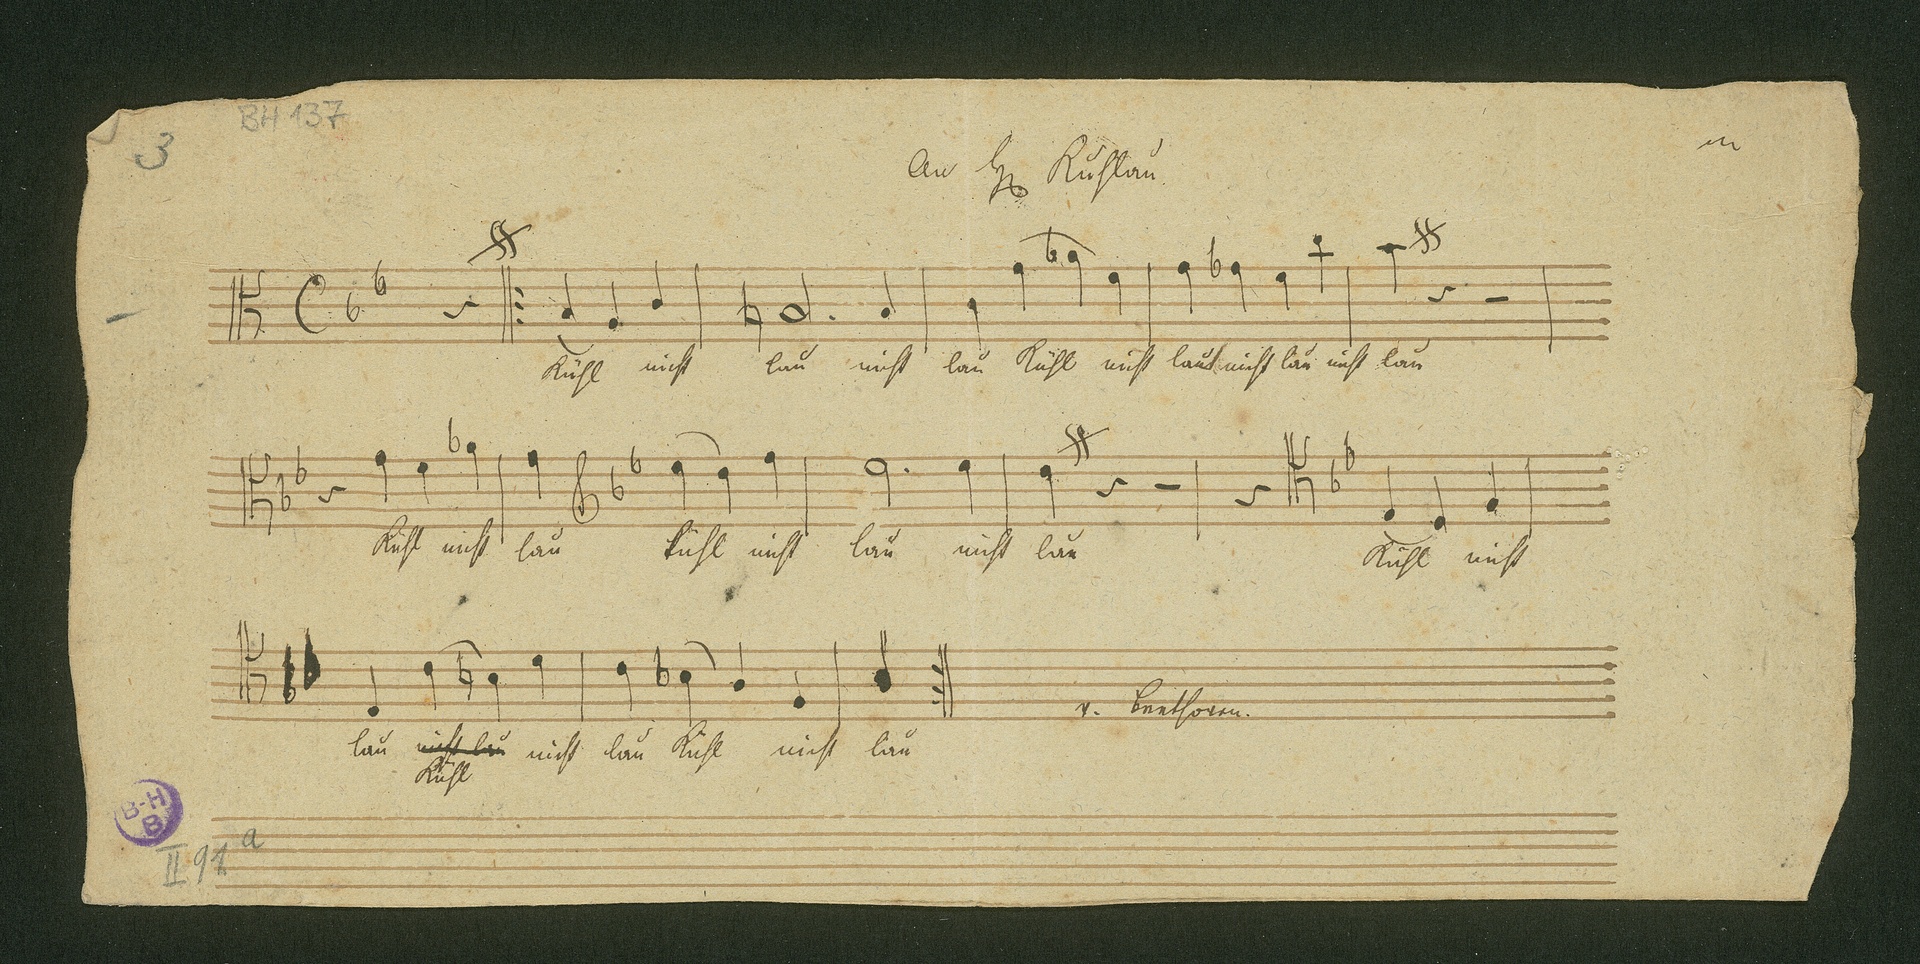 BH 137
3
An H. Kuhlau
Kühl nicht lau nicht lau Kühl nicht lau nicht lau nicht lau
Kühl nicht lau Kühl nicht lau nicht lau Kühl nicht
lau nicht lau nicht lau Kühl nicht lau
Kühl
v. Beethoven.
B-H
B
II 91 a